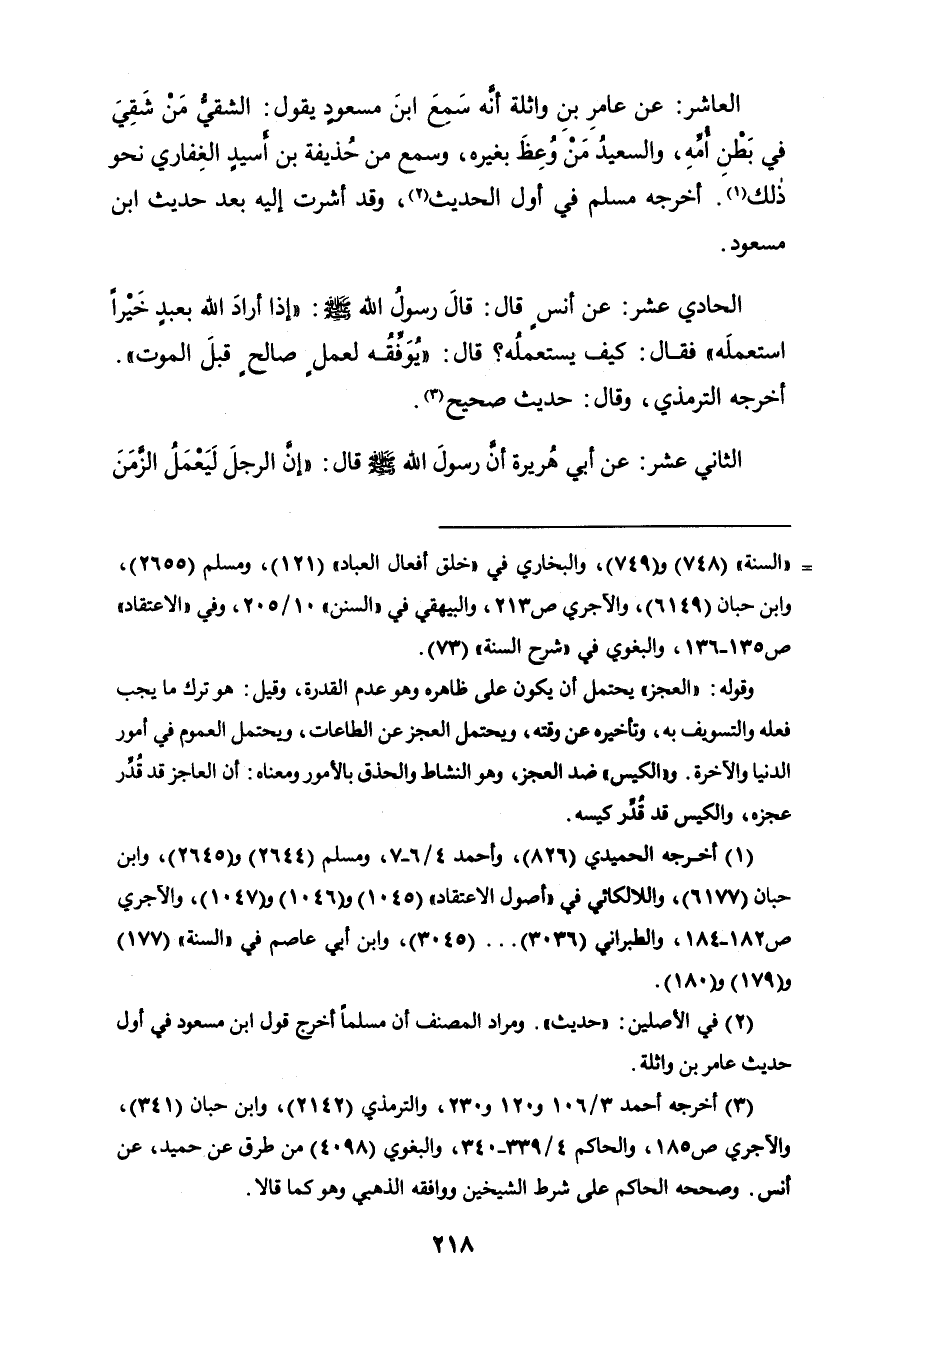 العاشر: عن عامرِ بنِ واثلة أنَّه سَمِعَ ابنَ مسعودٍ يقول: الشقيُّ مَنْ شَقِيَ
في بَطْنِ أُمِّهِ، والسعيدُ مَنْ وُعِظَ بغيره، وسمع من حُذيفة بن أَسيدٍ الغِفاري نحو
ذٰلك(١). أخرجه مسلم في أول الحديث(٢)، وقد أشرت إليه بعد حديث ابن
مسعود.
الحادي عشر: عن أنسٍ قال: قالَ رسولُ الله ﷺ: «إذا أرادَ الله بعبدٍ خَيْراً
استعملَه» فقال: كيف يستعملُه؟ قال: «يُوَفِّقُه لعملٍ صالحٍ قبلَ الموت».
أخرجه الترمذي، وقال: حديث صحيح(٣).
الثاني عشر: عن أبي هُريرة أنَّ رسولَ الله ﷺ قال: «إنَّ الرجلَ لَيَعْمَلُ الزَّمَنَ
= «السنة» (٧٤٨) و(٧٤٩)، والبخاري في «خلق أفعال العباد» (١٢١)، ومسلم (٢٦٥٥)،
وابن حبان (٦١٤٩)، والآجري ص٢١٣، والبيهقي في «السنن» ٢٠٥/١٠، وفي «الاعتقاد»
ص١٣٥-١٣٦، والبغوي في «شرح السنة» (٧٣).
وقوله: «العجز» يحتمل أن يكون على ظاهره وهو عدم القدرة، وقيل: هو ترك ما يجب
فعله والتسويف به، وتأخيره عن وقته، ويحتمل العجز عن الطاعات، ويحتمل العموم في أمور
الدنيا والآخرة. و«الكيس» ضد العجز، وهو النشاط والحذق بالأمور ومعناه: أن العاجز قد قُدِّر
عجزه، والكيس قد قُدِّر كيسه.
(١) أخرجه الحميدي (٨٢٦)، وأحمد ٦/٤-٧، ومسلم (٢٦٤٤) و(٢٦٤٥)، وابن
حبان (٦١٧٧)، واللالكائي في «أصول الاعتقاد» (١٠٤٥) و(١٠٤٦) و(١٠٤٧)، والآجري
ص١٨٢-١٨٤، والطبراني (٣٠٣٦)... (٣٠٤٥)، وابن أبي عاصم في «السنة» (١٧٧)
و(١٧٩) و(١٨٠).
(٢) في الأصلين: «حديث». ومراد المصنف أن مسلماً أخرج قول ابن مسعود في أول
حديث عامر بن واثلة.
(٣) أخرجه أحمد ١٠٦/٣ و١٢٠ و٢٣٠، والترمذي (٢١٤٢)، وابن حبان (٣٤١)،
والآجري ص١٨٥، والحاكم ٣٣٩/٤-٣٤٠، والبغوي (٤٠٩٨) من طرق عن حميد، عن
أنس. وصححه الحاكم على شرط الشيخين ووافقه الذهبي وهو كما قالا.
٢١٨